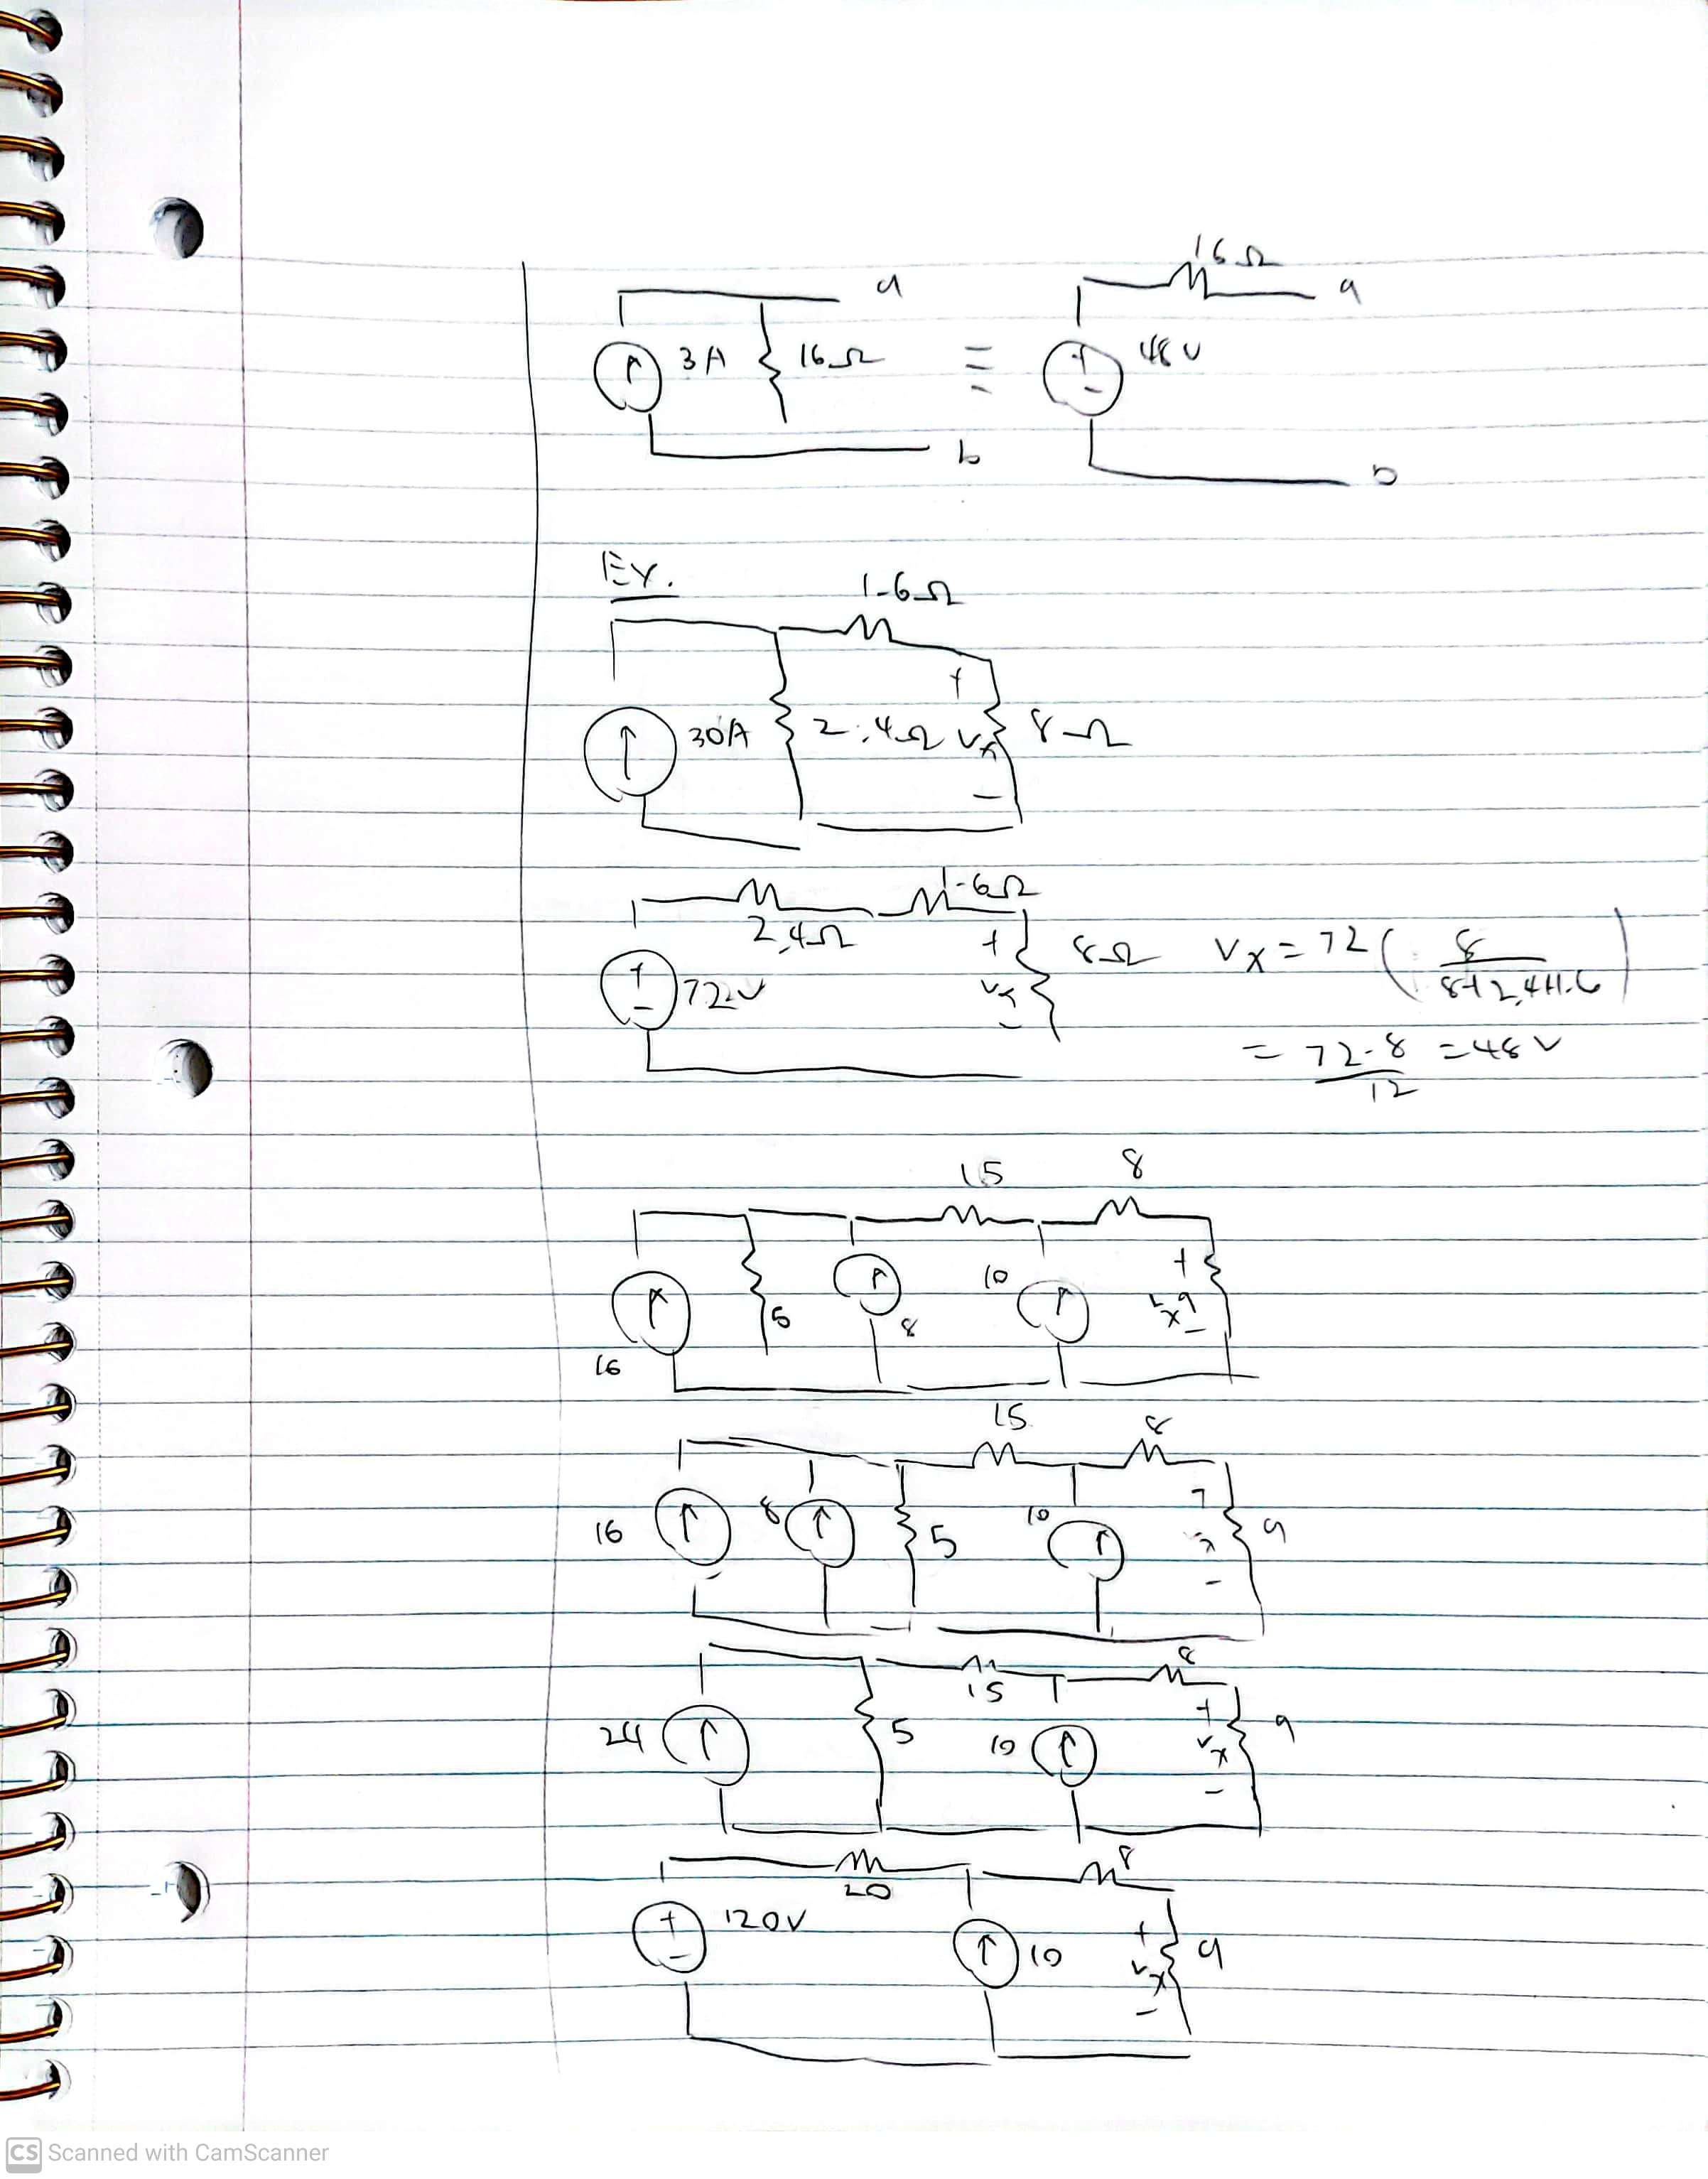 16Ω
a a
3A 16Ω ≡ + - 48V
b b
Ex.
1.6Ω
30A 2.4Ω + Vx - 8Ω
1.6Ω
2.4Ω
+ - 72V + Vx - 8Ω Vx = 72 ( 8 / 8+2.4+1.6 )
= 72·8 / 12 = 48V
15 8
16 5 8 10 + Vx - 9
15 8
16 8 5 10 + Vx - 9
15 8
24 5 10 + Vx - 9
20 8
+ - 120V 10 + Vx - 9
CS Scanned with CamScanner